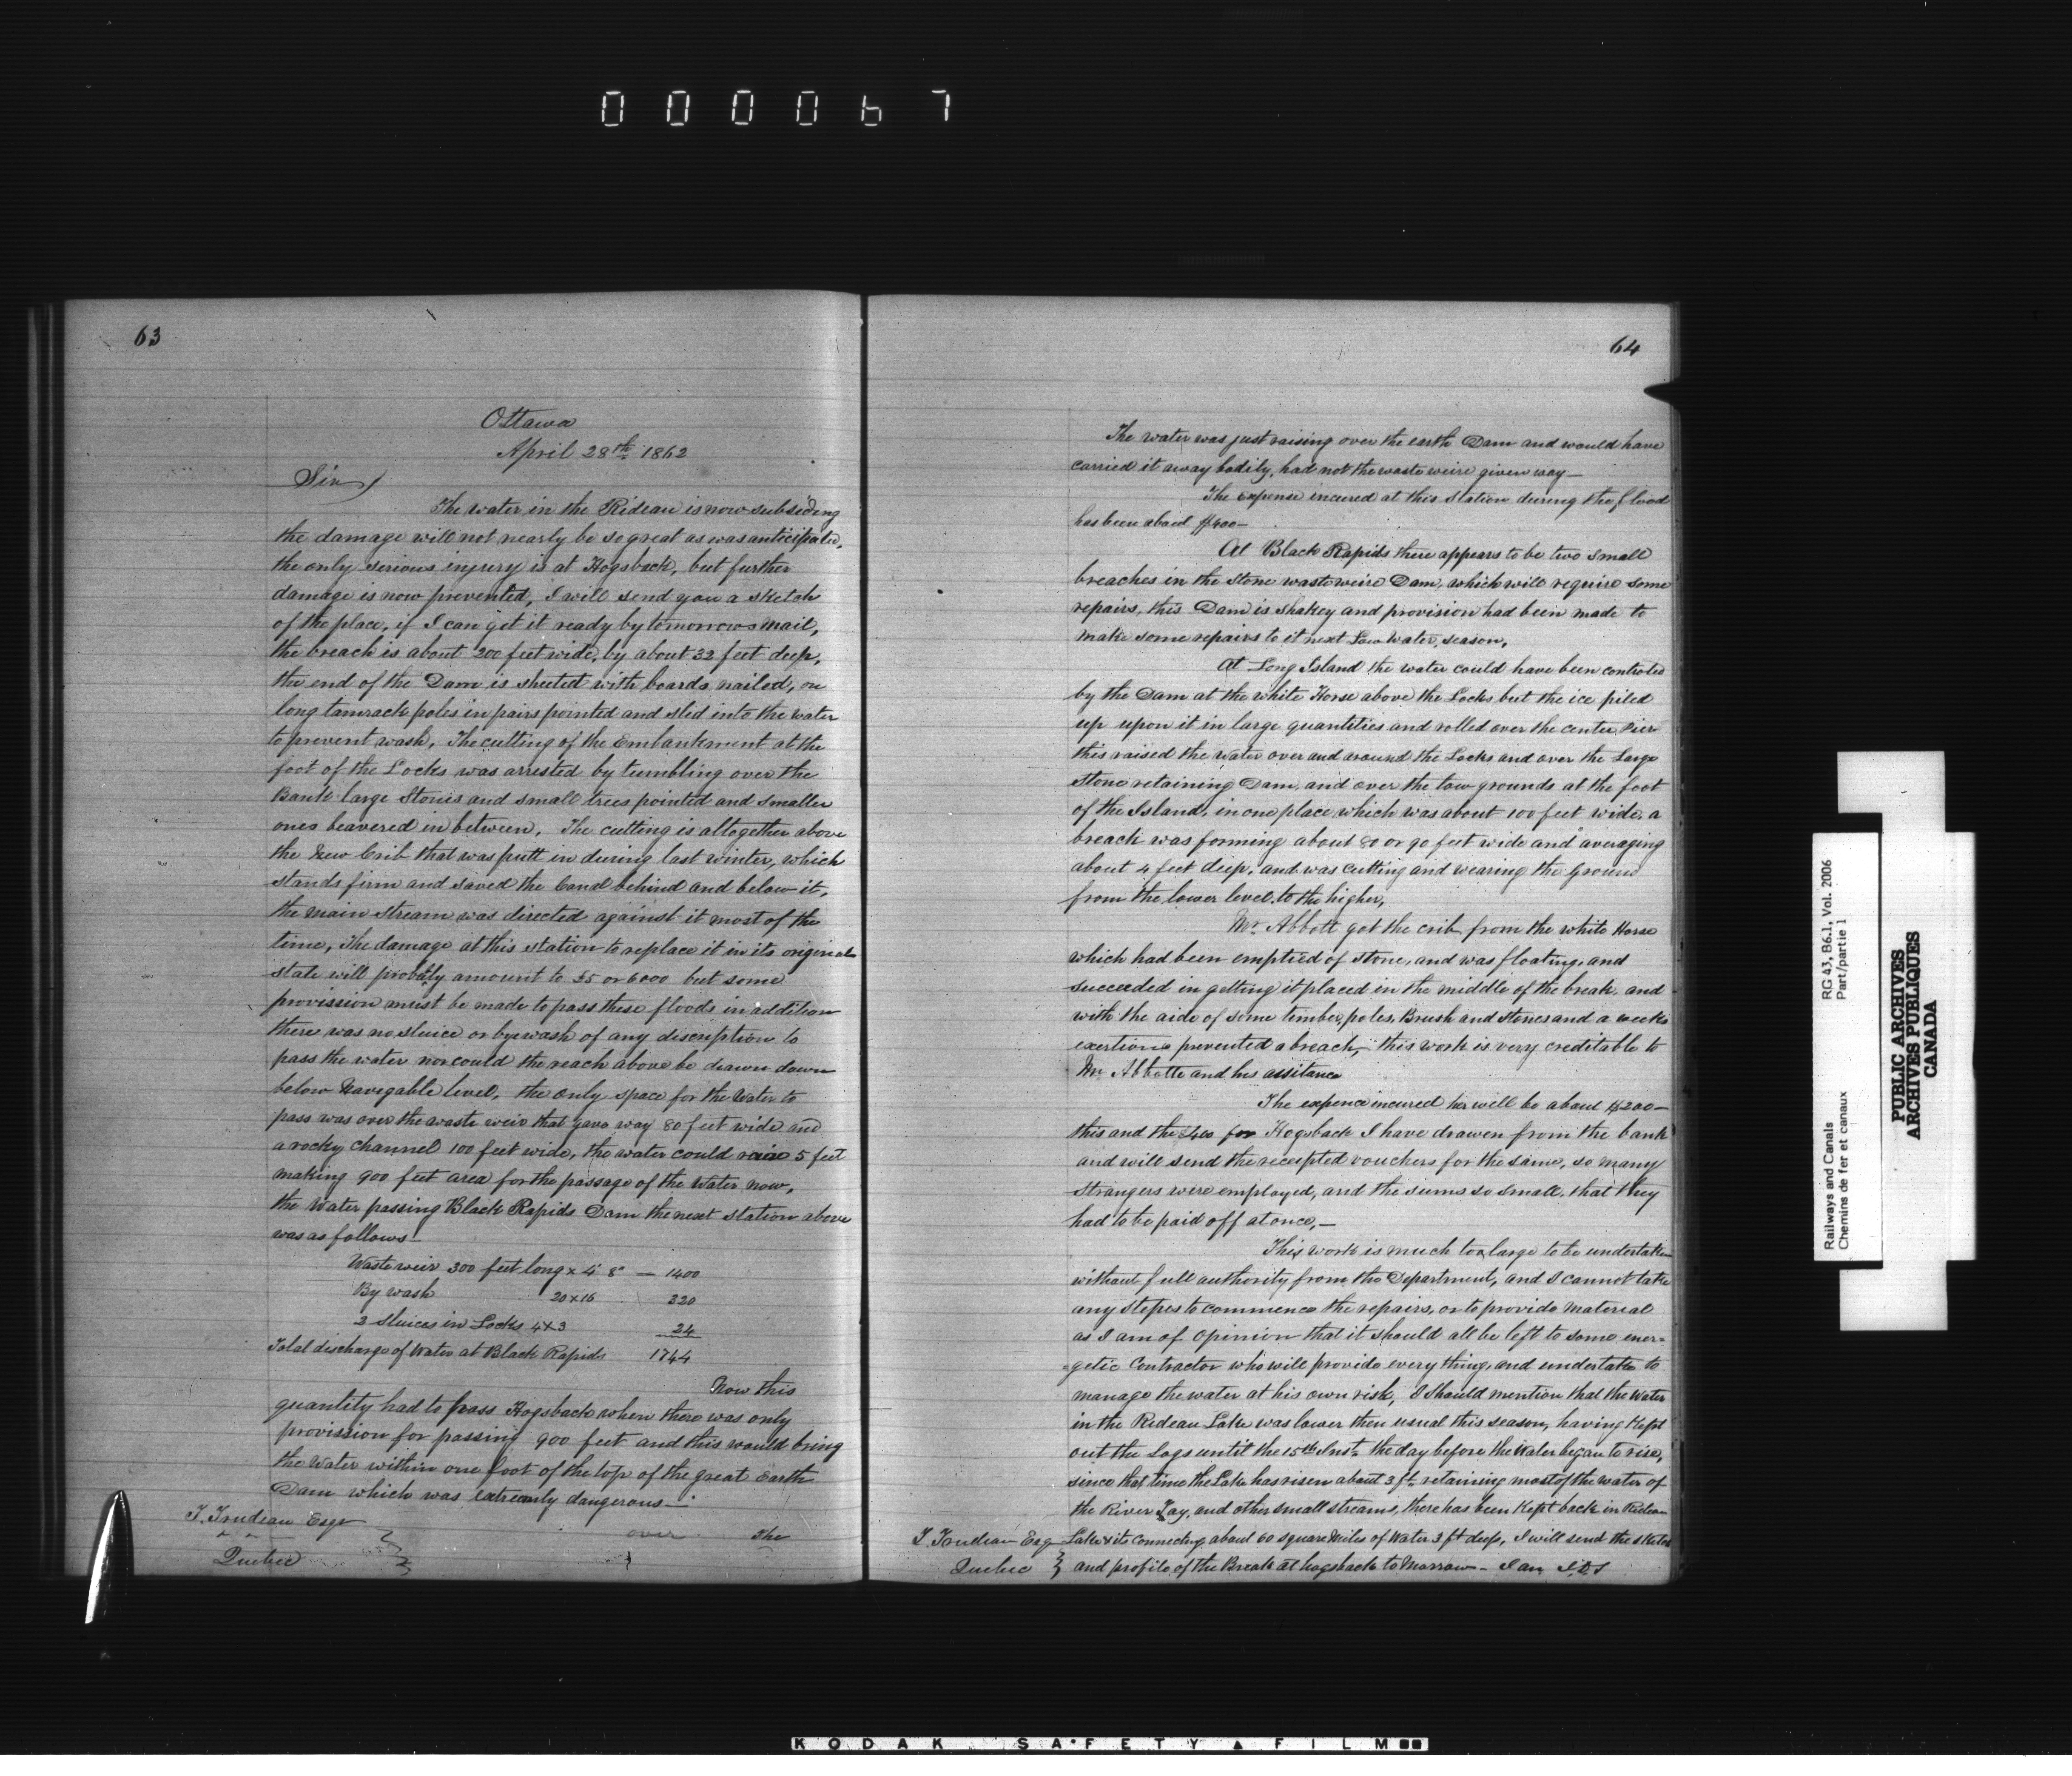 000067
63
Ottawa
April 28th 1862
Sir
The water in the Rideau is now subsiding
the damage will not nearly be so great as was anticipated,
the only serious injury is at Hogsback, but further
damage is now prevented, I will send you a sketch
of the place, if I can get it ready by tomorrows mail,
the breach is about 200 feet wide, by about 32 feet deep,
the end of the Dam is sheeted with boards nailed, on
long tamrack poles in pairs pointed and slid into the water
to prevent wash, The cutting of the Embankment at the
foot of the Locks was arrested by tumbling over the
Bank large Stones and small trees pointed and smaller
ones beavered in between, The cutting is altogether above
the New Crib that was putt in during last winter, which
stands firm and saved the Canal behind and below it,
the main stream was directed against it most of the
time, The damage at this station to replace it in its original
state will probably amount to $5 or 6000 but some
provission must be made to pass these floods in addition
there was no sluice or byewash of any discription to
pass the water nor could the reach above be drawn down
below Navigable level, the only space for the Water to
pass was over the waste weir that gave way 80 feet wide and
a rocky channel 100 feet wide, the water could raise 5 feet
making 900 feet area for the passage of the Water now,
the Water passing Black Rapids Dam the next station above
was as follows—
Waste weir 300 feet long x 4' 8" — 1400
By wash 20 x 16 320
2 Sluices in Locks 4 x 3 24
Total discharge of Water at Black Rapids 1744
Now this
quantity had to pass Hogsback when there was only
provission for passing 900 feet and this would bring
the Water within one foot of the top of the great Earth
Dam which was extreemly dangerous—
T. Trudeau Esqr
over The
Quebec
64
The water was just raising over the earth Dam and would have
carried it away bodily, had not the waste weire given way—
The expense incured at this station during the flood
has been about $400—
At Black Rapids there appears to be two small
breaches in the Stone waste weire Dam, which will require some
repairs, this Dam is shakey and provision had been made to
make some repairs to it next Low water season,
At Long Island the water could have been controled
by the Dam at the white Horse above the Locks but the ice piled
up upon it in large quantities and rolled over the center Pier
this raised the water over and around the Locks and over the Large
Stone retaining Dam, and over the low grounds at the foot
of the Island, in one place which was about 100 feet wide, a
breach was forming about 80 or 90 feet wide and averaging
about 4 feet deep, and was cutting and wearing the ground
from the lower level to the higher,
Mr. Abbott got the crib from the white Horse
which had been emptied of stone, and was floating, and
succeeded in getting it placed in the middle of the break, and
with the aide of some timber, poles, Brush and Stones and a weeks
exertions prevented a breach, this work is very creditable to
Mr Abbotte and his assitance
The expence incured her will be about $200—
this and the for Hogsback I have drawen from the bank
and will send the receipted vouchers for the same, so many
strangers were employed, and the sums so small, that they
had to be paid off at once,—
This work is much too large to be undertaken
without full authority from the Department, and I cannot take
any stepes to commence the repairs, or to provide material
as I am of opinion that it should all be left to some ener=
=getic Contractor who will provide every thing, and undertake to
manage the water at his own risk, I should mention that the Water
in the Rideau Lake was lower then usual this season, having Kept
out the Logs until the 15th Inst the day before the Water began to rise,
since that time the Lake has risen about 3 ft retaining most of the water of
the River Tay, and other small streams, there has been Kept back in Rideau
Lake & its connecting about 60 square Miles of Water 3 ft deep, I will send the sketch
and profile of the Break at hogsback to Morrow— I am
T. Trudeau Esq
Quebec
Railways and Canals
Chemins de fer et canaux
RG 43, B6.1, Vol. 2006
Part/partie 1
PUBLIC ARCHIVES
ARCHIVES PUBLIQUES
CANADA
KODAK SAFETY FILM